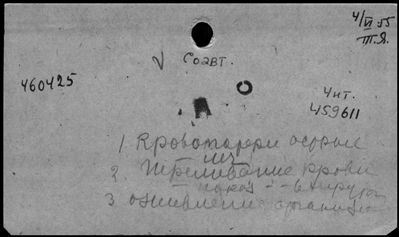 4/VI 55
т.я.
V Соавт.
460425
Чит.
459611
1. Кровопотери острые
леч
2. Переливание крови
показ - в хирург
3 оживление организма